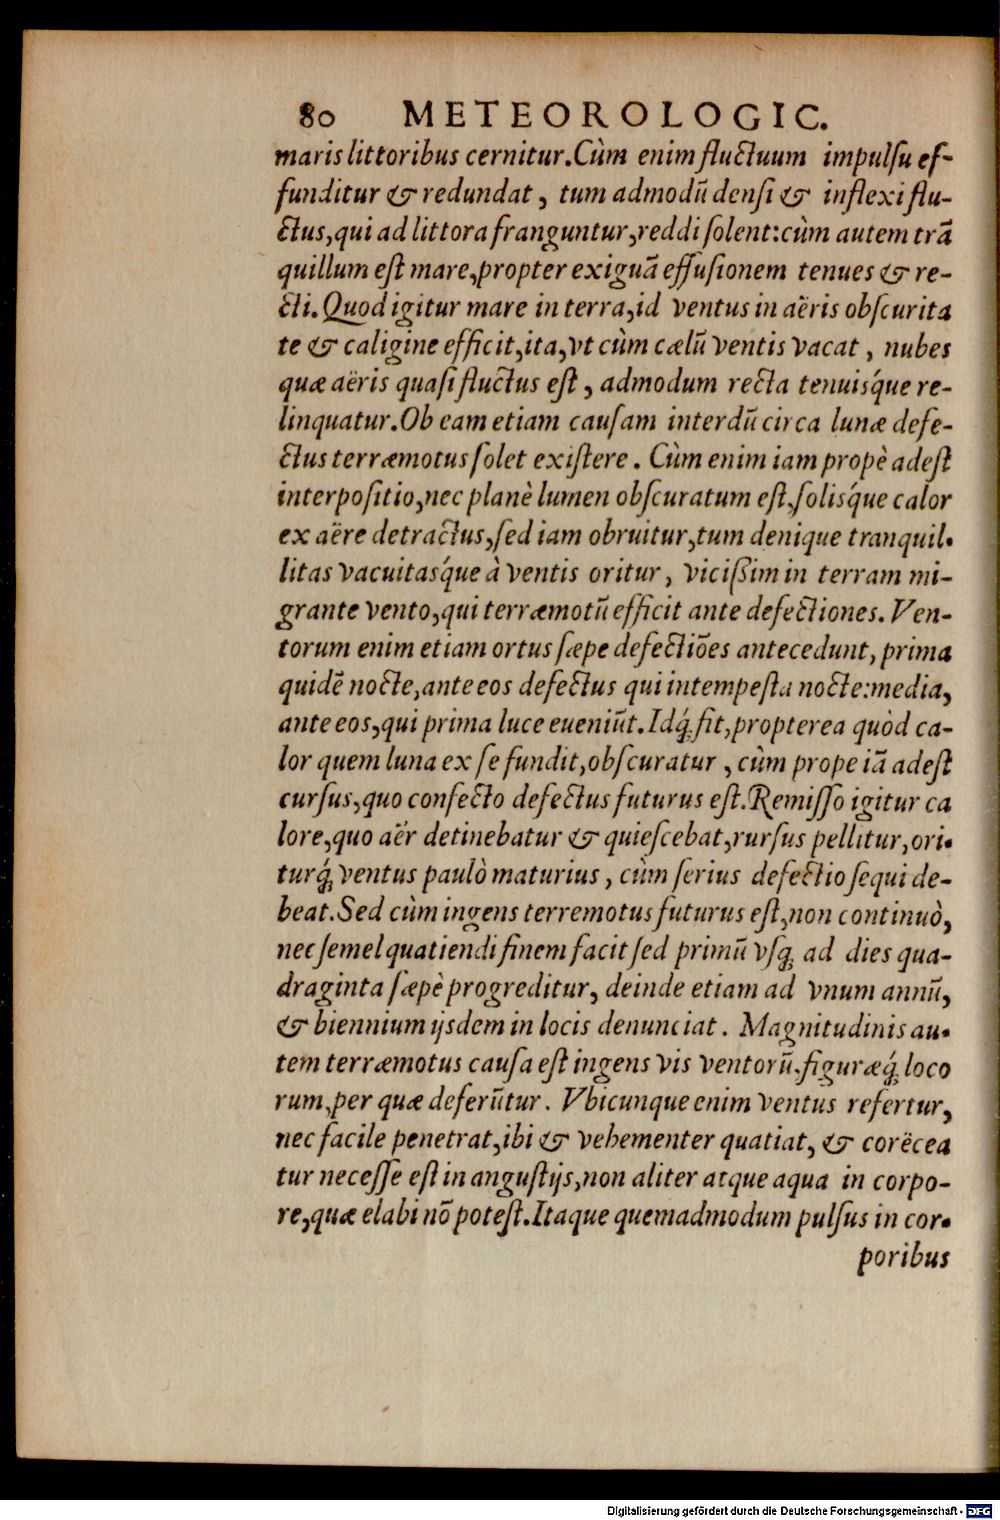 80 METEOROLOGIC.
maris littoribus cernitur. Cùm enim fluctuum impulsu ef-
funditur & redundat, tum admodū densi & inflexi flu-
ctus, qui ad littora franguntur, reddi solent: cùm autem trā
quillum est mare, propter exiguā effusionem tenues & re-
cti. Quod igitur mare in terra, id ventus in aëris obscurita
te & caligine efficit, ita, vt cùm cælū ventis vacat, nubes
quæ aëris quasi fluctus est, admodum recta tenuisq́ue re-
linquatur. Ob eam etiam causam interdū circa lunæ defe-
ctus terræmotus solet existere. Cùm enim iam propè adest
interpositio, nec planè lumen obscuratum est, solisq́ue calor
ex aëre detractus, sed iam obruitur, tum denique tranquil-
litas vacuitasq́ue à ventis oritur, vicißim in terram mi-
grante vento, qui terræmotū efficit ante defectiones. Ven-
torum enim etiam ortus sæpe defectiōes antecedunt, prima
quidē nocte, ante eos defectus qui intempesta nocte: media,
ante eos, qui prima luce eueniūt. Idq́; fit, propterea quòd ca-
lor quem luna ex se fundit, obscuratur, cùm prope iā adest
cursus, quo confecto defectus futurus est. Remisso igitur ca
lore, quo aër detinebatur & quiescebat, rursus pellitur, ori-
turq́; ventus paulò maturius, cùm serius defectio sequi de-
beat. Sed cùm ingens terremotus futurus est, non continuò,
nec semel quatiendi finem facit sed primū vsq; ad dies qua-
draginta sæpè progreditur, deinde etiam ad vnum annū,
& biennium ijsdem in locis denunciat. Magnitudinis au-
tem terræmotus causa est ingens vis ventorū, figuræq́; loco
rum, per quæ deferūtur. Vbicunque enim ventus refertur,
nec facile penetrat, ibi & vehementer quatiat, & corëcea
tur necesse est in angustijs, non aliter atque aqua in corpo-
re, quæ elabi nō potest. Itaque quemadmodum pulsus in cor-
poribus
Digitalisierung gefördert durch die Deutsche Forschungsgemeinschaft - DFG